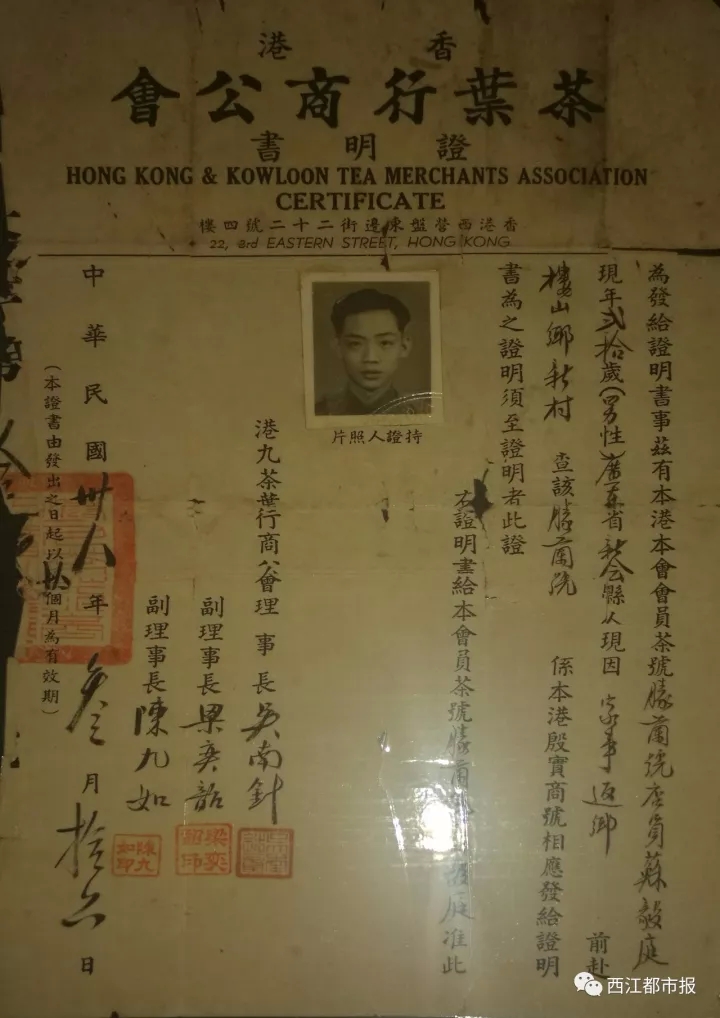 香港
茶葉行商公會
證明書
HONG KONG & KOWLOON TEA MERCHANTS ASSOCIATION
CERTIFICATE
香港西營盤東邊街二十二號四樓
22, 3rd EASTERN STREET, HONG KONG
為發給證明書事茲有本港本會會員茶號勝蘭號店員蘇毅庭
現年弍拾歲(男性)廣東省新會縣人現因家事返鄉前赴
樓山鄉新村查該勝蘭號係本港殷實商號相應發給證明
書為之證明須至證明者此證
右證明書給本會員茶號勝蘭庭准此
持證人照片
港九茶葉行商公會理事長吳南針
副理事長梁奕韶
副理事長陳九如
陳九如印
中華民國卅八年叁月拾六日
(本證書由發出之日起以個月為有效期)
西江都市报